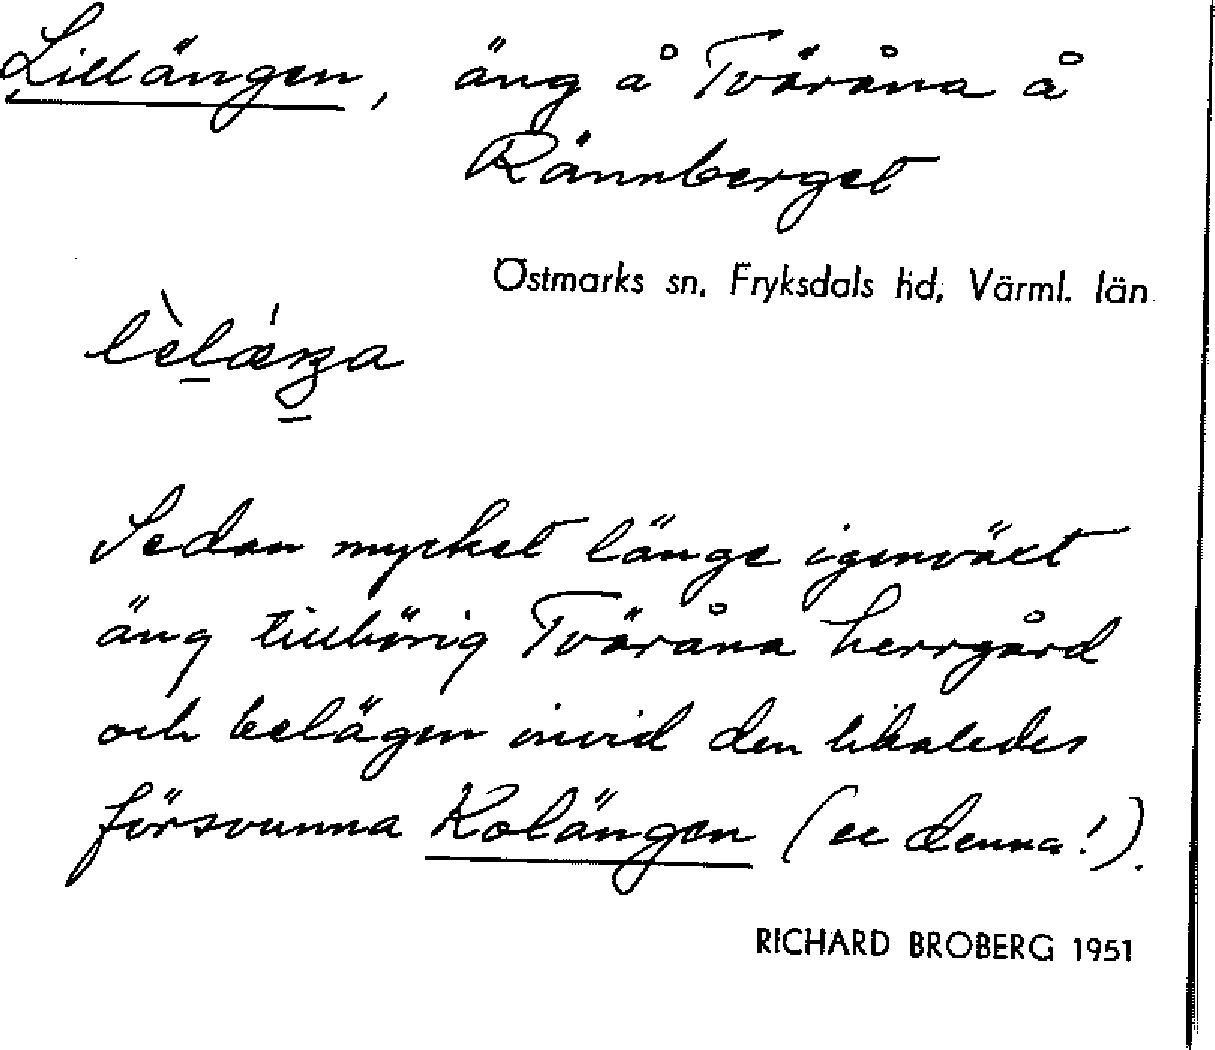 Lillängen, äng å Tväråna å
Rännberget
Östmarks sn, Fryksdals hd, Värml. län
Sedan mycket länge igenväxt
äng tillhörig Tväråna herrgård
och belägen invid den likaledes
försvunna Kolängen (se denna!).
RICHARD BROBERG 1951